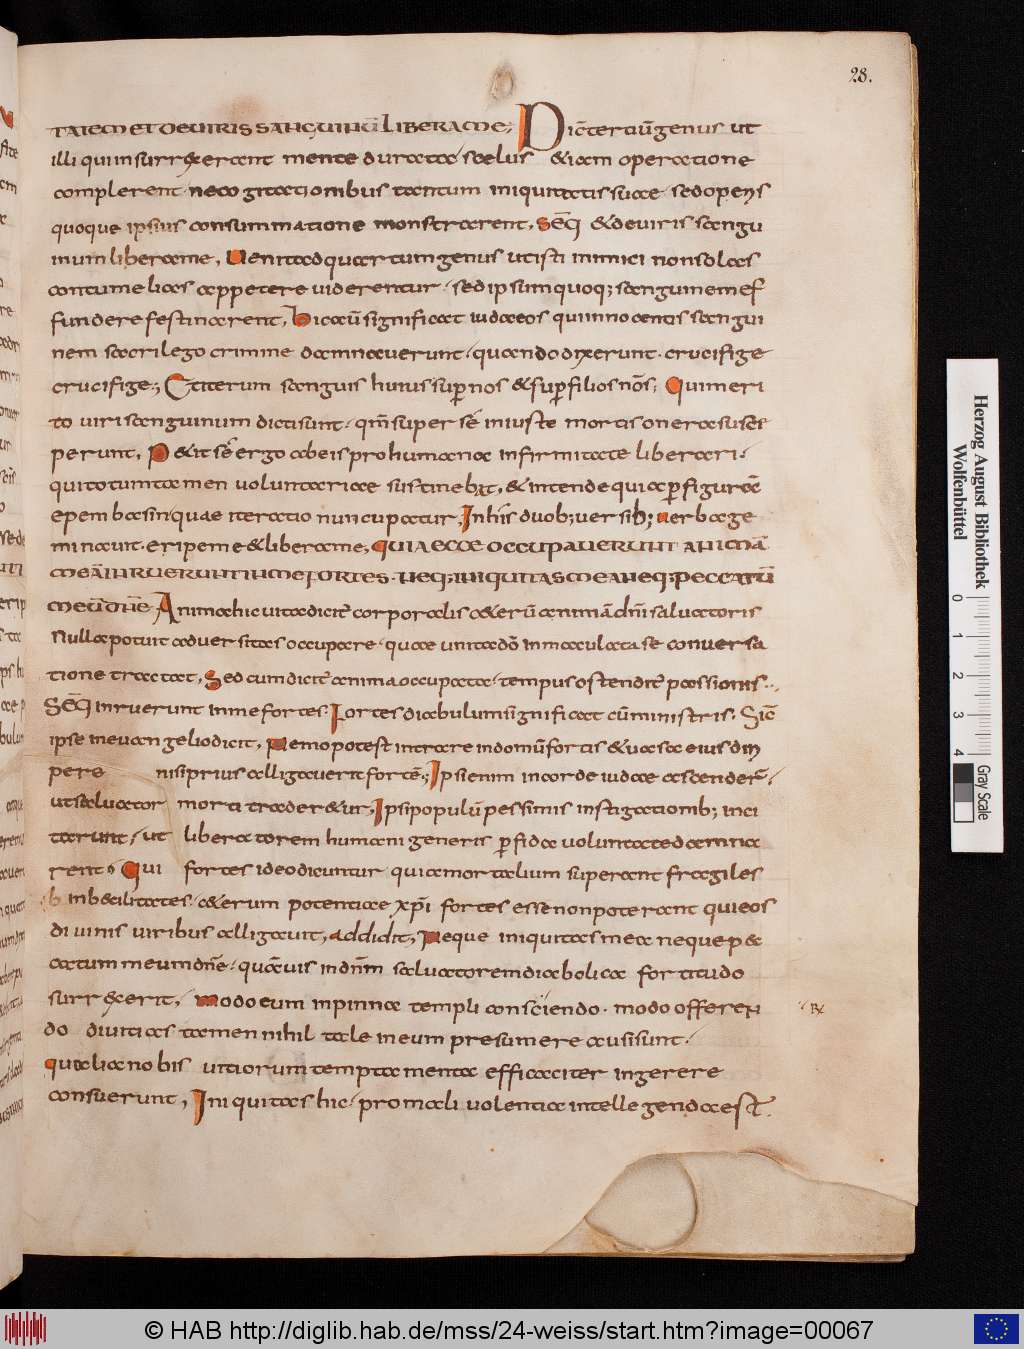 28.
TATEM ET DE VIRIS SANGUINŪ LIBERA ME; Dic̄ tertiū genus ut
illi qui insurrexerant mente durata scelus &iam operatione
complerent nec cogitationibus tantum iniquitatis suae sed operis
quoque ipsius consummatione monstrarent, Seq̄ & de viris sangu
inum libera me, Venit ad quartum genus ut isti inimici non solas
contumelias appetere viderentur sed ipsum quoq; sanguinem ef
fundere festinarent, hic aū significat iudaeos qui innocentis sangui
nem sacrilego crimine damnaverunt quando dixerunt crucifige
crucifige; Et iterum sanguis huius super nos & sup filios nōs; Qui meri
to viri sanguinum dicti sunt qm̄ super sē iniuste mortis onera susce
perunt, P&it sē ergo ab eis pro humana infirmitate liberari
qui totum tamen voluntariae sustinebat, & intende quia p figurā
epembasin quae iteratio nuncupatur, In his duob; versib; verba ge
minavit. eripe me & libera me, QUIA ECCE OCCUPAVERUNT ANIMĀ
MEĀ INRUERUNT IN ME FORTES. NEQ; INIQUITAS MEA NEQ; PECCATŪ
MEŪ DN̄E Anima hic vita dicit̄ corporalis &erū animā dn̄i salvatoris
Nulla potuit adversitas occupare quae unita dō inmaculata se conversa
tione tractat, Sed cum dicit̄ anima occupata tempus ostendit̄ passionis
Seq̄ inruerunt in me fortes. Fortes diabulum significat cū ministris. Sic̄
ipse in evangelio dicit, Nemo potest intrare in domū fortis & vasa eius diri
pere nisi prius alligaverit fortē; Ipse enim in corde iudae ascender̄
ut salvator morti trader&ur, Ipsi populū pessimis instigationib; inci
tarunt, ut liberatorem humani generis pfida voluntate damna
rent, Qui fortes ideo dicuntur quia mortalium superant fragiles
inbecilitates. c&erum potentiae xp̄i fortes esse non poterant qui eos
divinis viribus alligavit, addidit, Neque iniquitas mea neque pec
catum meum dn̄e quāvis in dn̄m salvatorem diabolica fortitudo
surrexerit, modo eum in pinna templi consciendo. modo offeren
do divitias tamen nihil tale in eum presumere ausi sunt.
qualia nobis vitiorum temptamenta efficaciter ingerere
consuerunt, Iniquitas hic pro malivolentia intellegenda est
Herzog August Bibliothek
Wolfenbüttel
0 1 2 3 4
Gray Scale
© HAB http://diglib.hab.de/mss/24-weiss/start.htm?image=00067